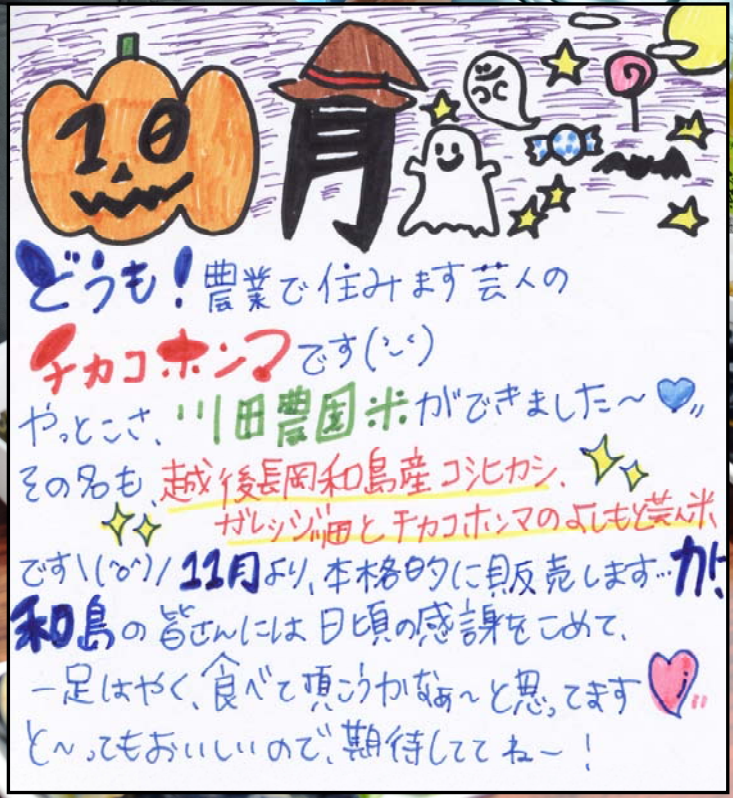 10月
どうも!農業で住みます芸人の
チカコホンマです(˙˘˙)
やっとこさ、川田農園米ができました〜
その名も、越後長岡和島産コシヒカリ、
ガレッジ川田とチカコホンマのよしもと芸人米
です\(^o^)/11月より、本格的に販売します…が!
和島の皆さんには日頃の感謝をこめて、
一足はやく、食べて頂こうかなぁ〜と思ってます
と〜ってもおいしいので、期待しててね〜!